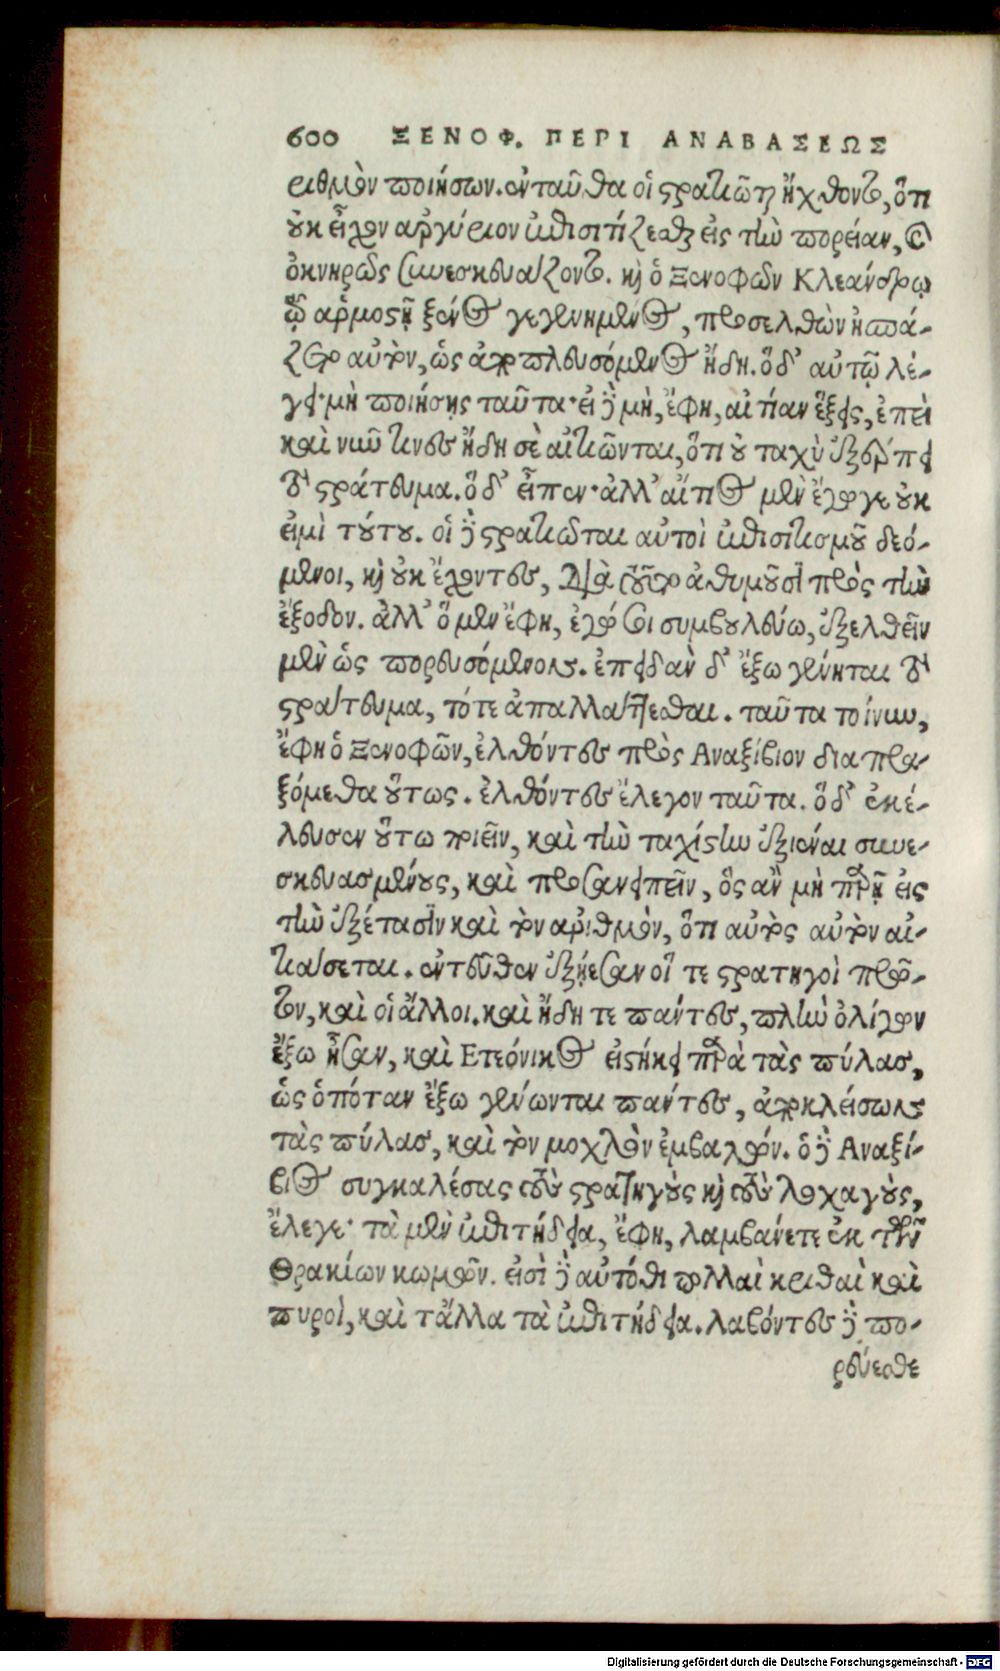 600 ΞΕΝΟΦ. ΠΕΡΙ ΑΝΑΒΑΣΕΩΣ
ριθμὸν ποιήσων. ἐνταῦθα οἱ στρατιῶται ἤχθοντο, ὅτι
οὐκ εἶχον ἀργύριον ἐπισιτίζεσθαι εἰς τὴν πορείαν, καὶ
ὀκνηρῶς συνεσκευάζοντο. καὶ ὁ Ξενοφῶν Κλεάνδρῳ
τῷ ἁρμοστῇ ξένος γεγενημένος, προσελθὼν ἠσπά-
ζετο αὐτὸν, ὡς ἀποπλευσόμενος ἤδη. ὅδ' αὐτῷ λέ-
γει· μὴ ποιήσῃς ταῦτα· εἰ δὲ μὴ, ἔφη, αἰτίαν ἕξεις, ἐπεὶ
καὶ νῦν τινες ἤδη σὲ αἰτιῶνται, ὅτι οὐ ταχὺ ἐξέρπει
τὸ στράτευμα. ὅδ' εἶπεν· ἀλλ' αἴτιος μὲν ἔγωγε οὐκ
εἰμὶ τούτου. οἱ δὲ στρατιῶται αὐτοὶ ἐπισιτισμοῦ δεό-
μενοι, καὶ οὐκ ἔχοντες, διὰ τοῦτο ἀθυμοῦσι πρὸς τὴν
ἔξοδον. ἀλλ' ὅμως ἔφη, ἐγώ σοι συμβουλεύω, ἐξελθεῖν
μὲν ὡς πορευσόμενος. ἐπειδὰν δ' ἔξω γένηται τὸ
στράτευμα, τότε ἀπαλλάττεσθαι. ταῦτα τοίνυν,
ἔφη ὁ Ξενοφῶν, ἐλθόντες πρὸς Ἀναξίβιον διαπρα-
ξόμεθα οὕτως. ἐλθόντες ἔλεγον ταῦτα. ὅδ' ἐκέ-
λευσεν οὕτω ποιεῖν, καὶ τὴν ταχίστην ἐξιέναι συνε-
σκευασμένους, καὶ προσανειπεῖν, ὃς ἂν μὴ παρῇ εἰς
τὴν ἐξέτασιν καὶ τὸν ἀριθμὸν, ὅτι αὐτὸς αὑτὸν αἰ-
τιάσεται. ἐντεῦθεν ἐξῄεσαν οἵ τε στρατηγοὶ πρῶ-
τον, καὶ οἱ ἄλλοι. καὶ ἤδη τε πάντες, πλὴν ὀλίγων
ἔξω ἦσαν, καὶ Ετεόνικος εἱστήκει παρὰ τὰς πύλας,
ὡς ὁπόταν ἔξω γένωνται πάντες, ἀποκλείσων
τὰς πύλας, καὶ τὸν μοχλὸν ἐμβαλῶν. ὁ δὲ Ἀναξί-
βιος συγκαλέσας τοὺς στρατηγοὺς καὶ τοὺς λοχαγοὺς,
ἔλεγε· τὰ μὲν ἐπιτήδεια, ἔφη, λαμβάνετε ἐκ τῶν
Θρακίων κωμῶν. εἰσὶ δὲ αὐτόθι πολλαὶ κριθαὶ καὶ
πυροὶ, καὶ τἄλλα τὰ ἐπιτήδεια. λαβόντες δὲ πο-
ρεύεσθε
Digitalisierung gefördert durch die Deutsche Forschungsgemeinschaft - DFG